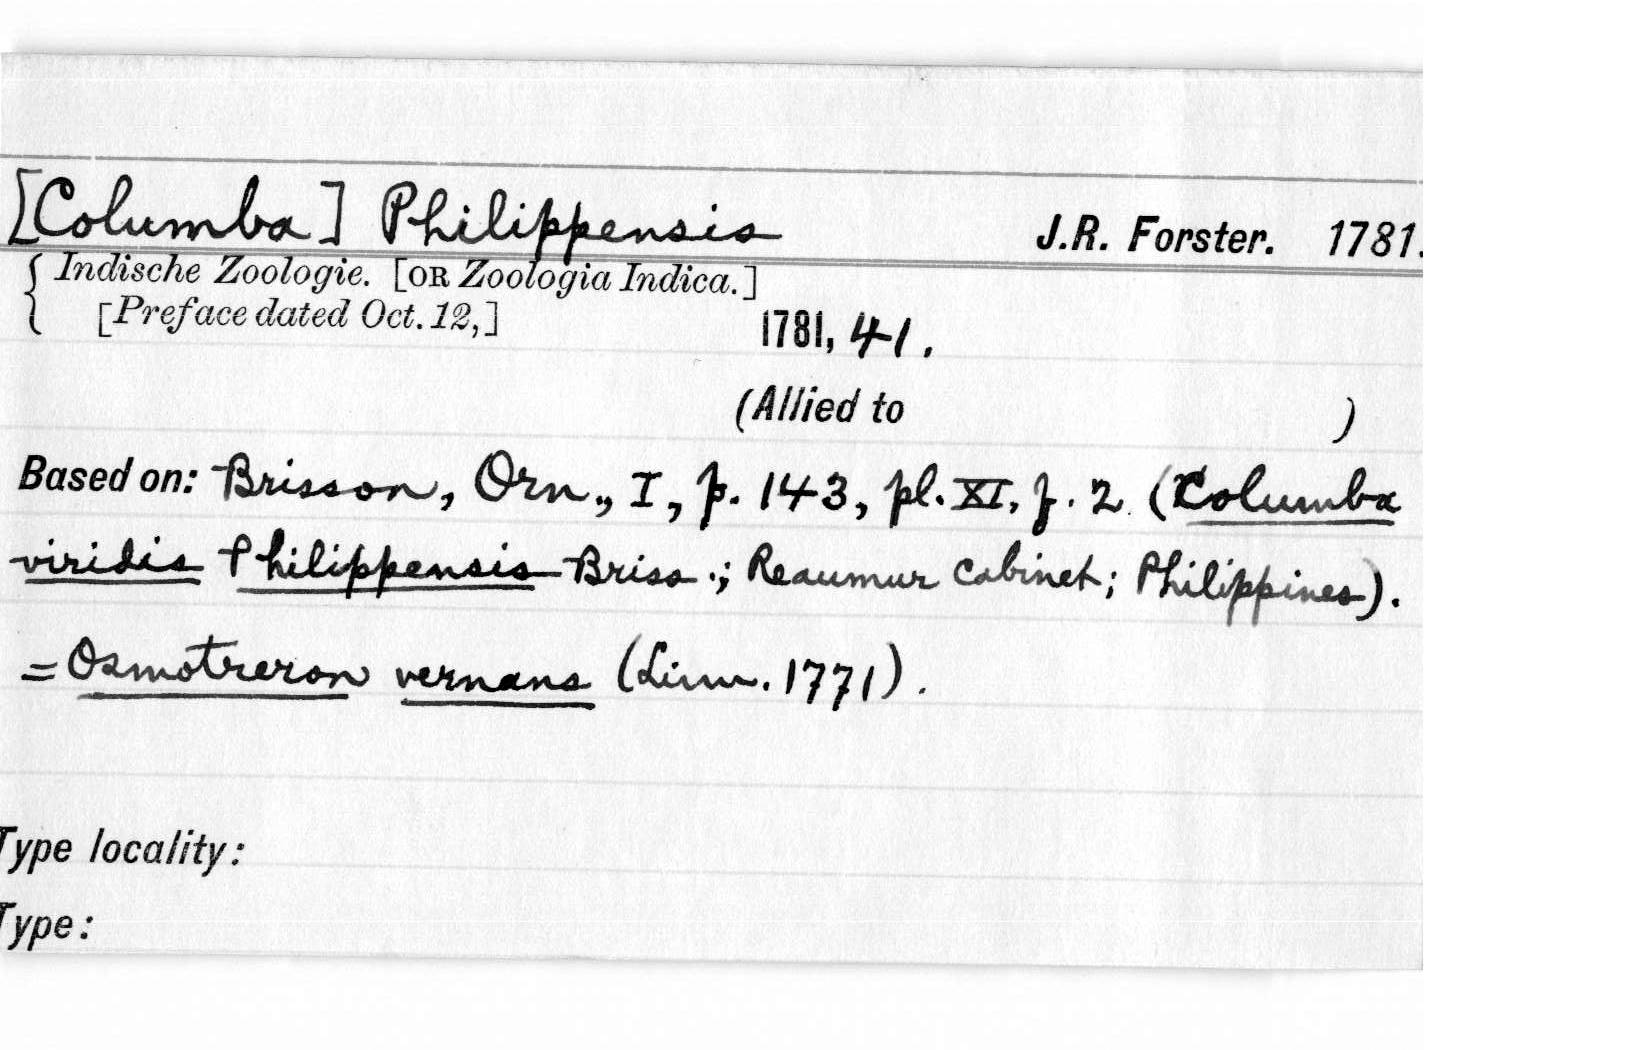 [Columba] Philippensis J.R. Forster. 1781.
{ Indische Zoologie. [OR Zoologia Indica.]
[Preface dated Oct. 12,]
1781, 41.
(Allied to )
Based on: Brisson, Orn., I, p. 143, pl. XI, f. 2. (Columba
viridis Philippensis Briss.; Reaumur Cabinet; Philippines).
= Osmotreron vernans (Linn. 1771).
Type locality:
Type: